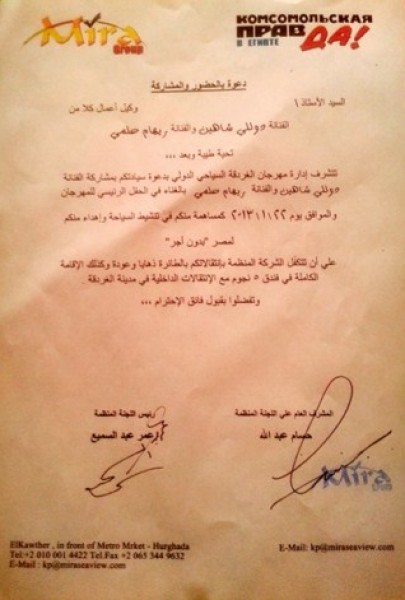 Mira
Group
КОМСОМОЛЬСКАЯ
ПРАВДА!
В ЕГИПТЕ
دعوة بالحضور والمشاركة
السيد الأستاذ / وكيل أعمال كلا من
الفنانة دوللي شاهين والفنانة ريهام حلمي
تحية طيبة وبعد ,,,
تتشرف إدارة مهرجان الغردقة السياحي الدولي بدعوة سيادتكم بمشاركة الفنانة
دوللي شاهين والفنانة ريهام حلمي بالغناء في الحفل الرئيسي للمهرجان
والموافق يوم ٢٠١٣/١/٢٢ كمساهمة منكم في تنشيط السياحة وإهداء منكم
لمصر "بدون أجر"
علي أن تتكفل الشركة المنظمة بإنتقالاتكم بالطائرة ذهابا وعودة وكذلك الإقامة
الكاملة في فندق ٥ نجوم مع الإنتقالات الداخلية في مدينة الغردقة
وتفضلوا بقبول فائق الإحترام ,,,
المشرف العام علي اللجنة المنظمة
حسام عبد الله
رئيس اللجنة المنظمة
عمر عبد السميع
Mira
Group
ElKawther , in front of Metro Mrket - Hurghada
Tel:+2 010 001 4422 Tel.Fax +2 065 344 9632
E-Mail : kp@miraseaview.com
E-Mail: kp@miraseaview.com